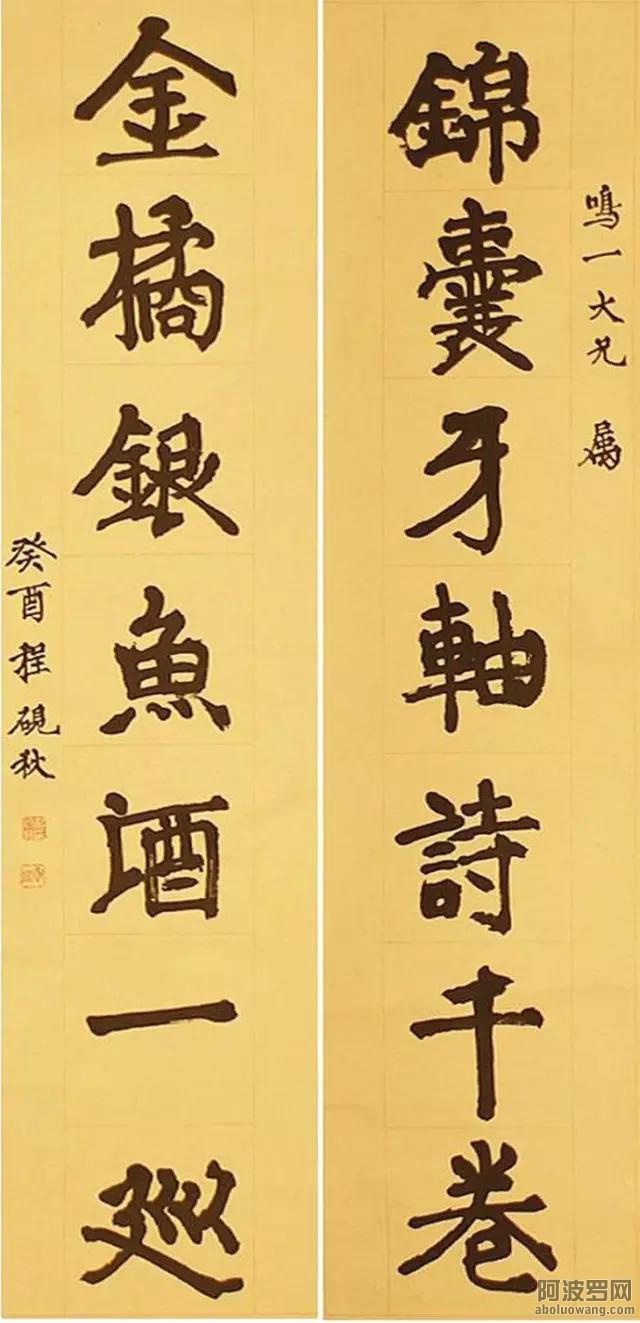 鳴一大兄 属
錦囊牙軸詩千卷
金橘銀魚酒一巡
癸酉程硯秋
阿波罗网
aboluowang.com